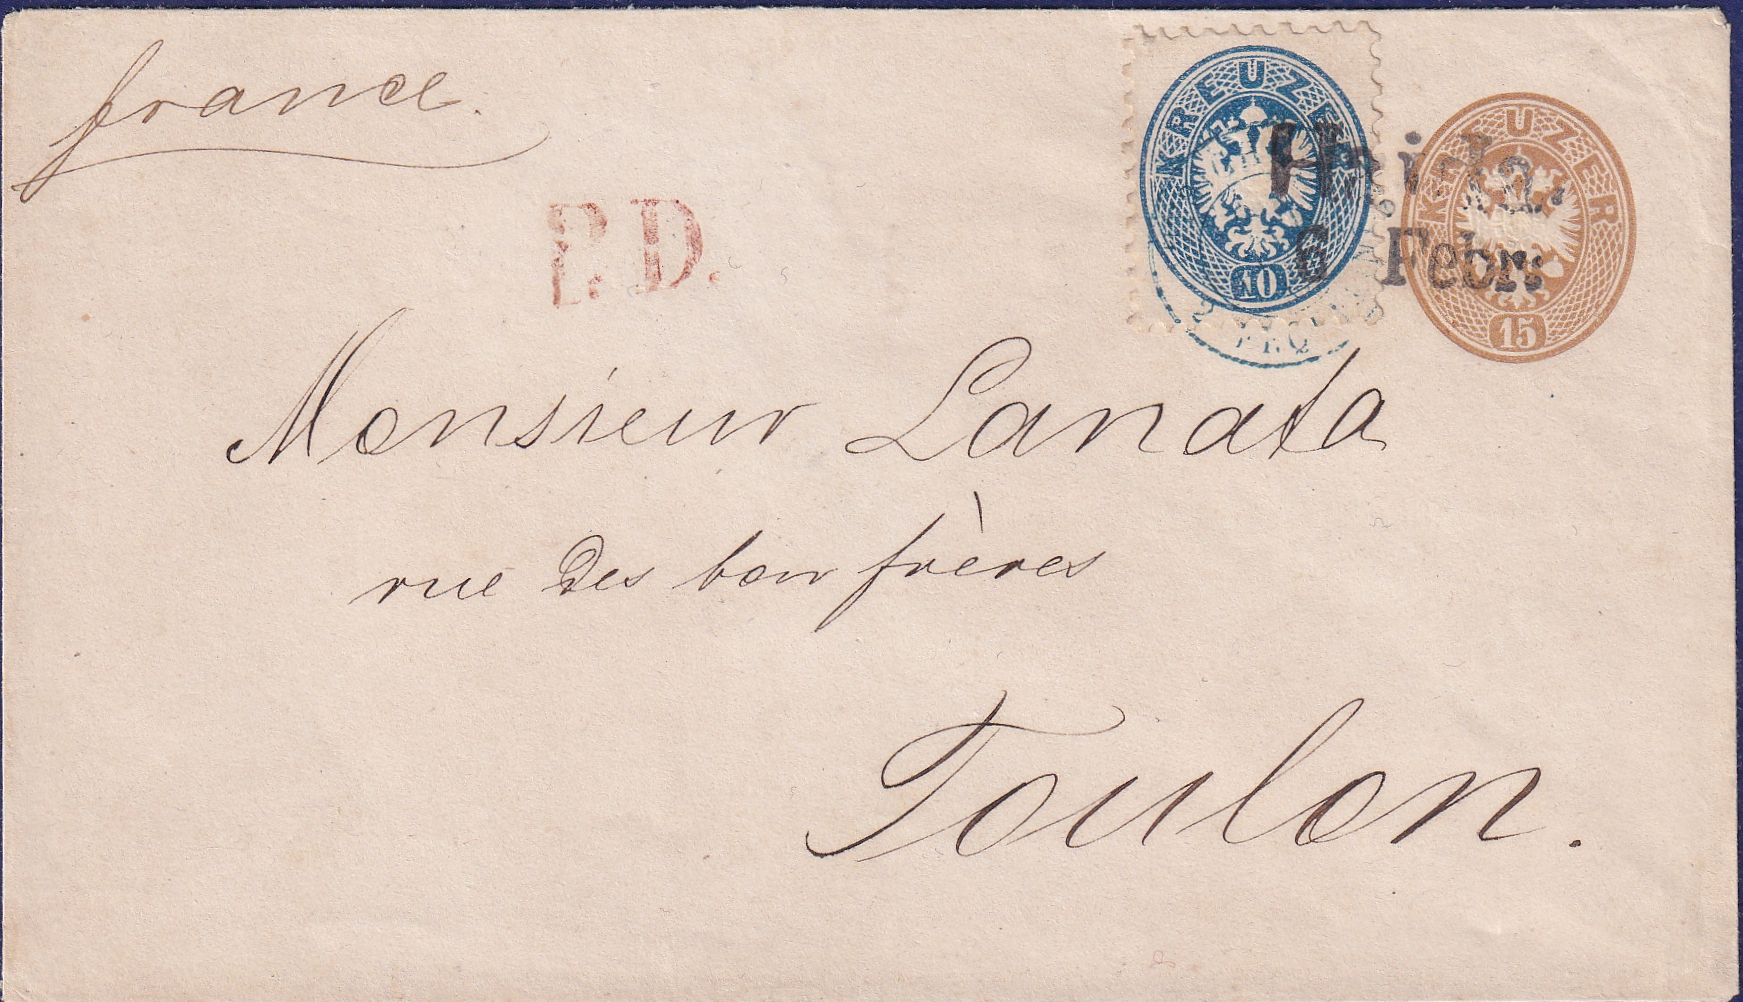 france.
P.D.
KREUZER
10
KREUZER
15
Haida.
6 Febr:
Monsieur Lanata
rue des bon frères
Toulon.